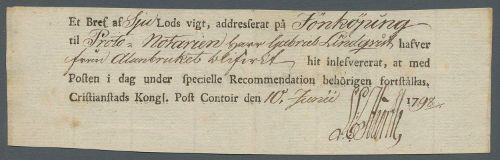 Et Bref af Sju Lods vigt, addresserat på Jönköping
til Proto-Notarien Herr Gabriel Lindqvist, hafver
frun hit inlefvererat, at med
Posten i dag under specielle Recommendation behörigen fortställas.
Cristianstads Kongl. Post Contoir den 10 Junii 1798